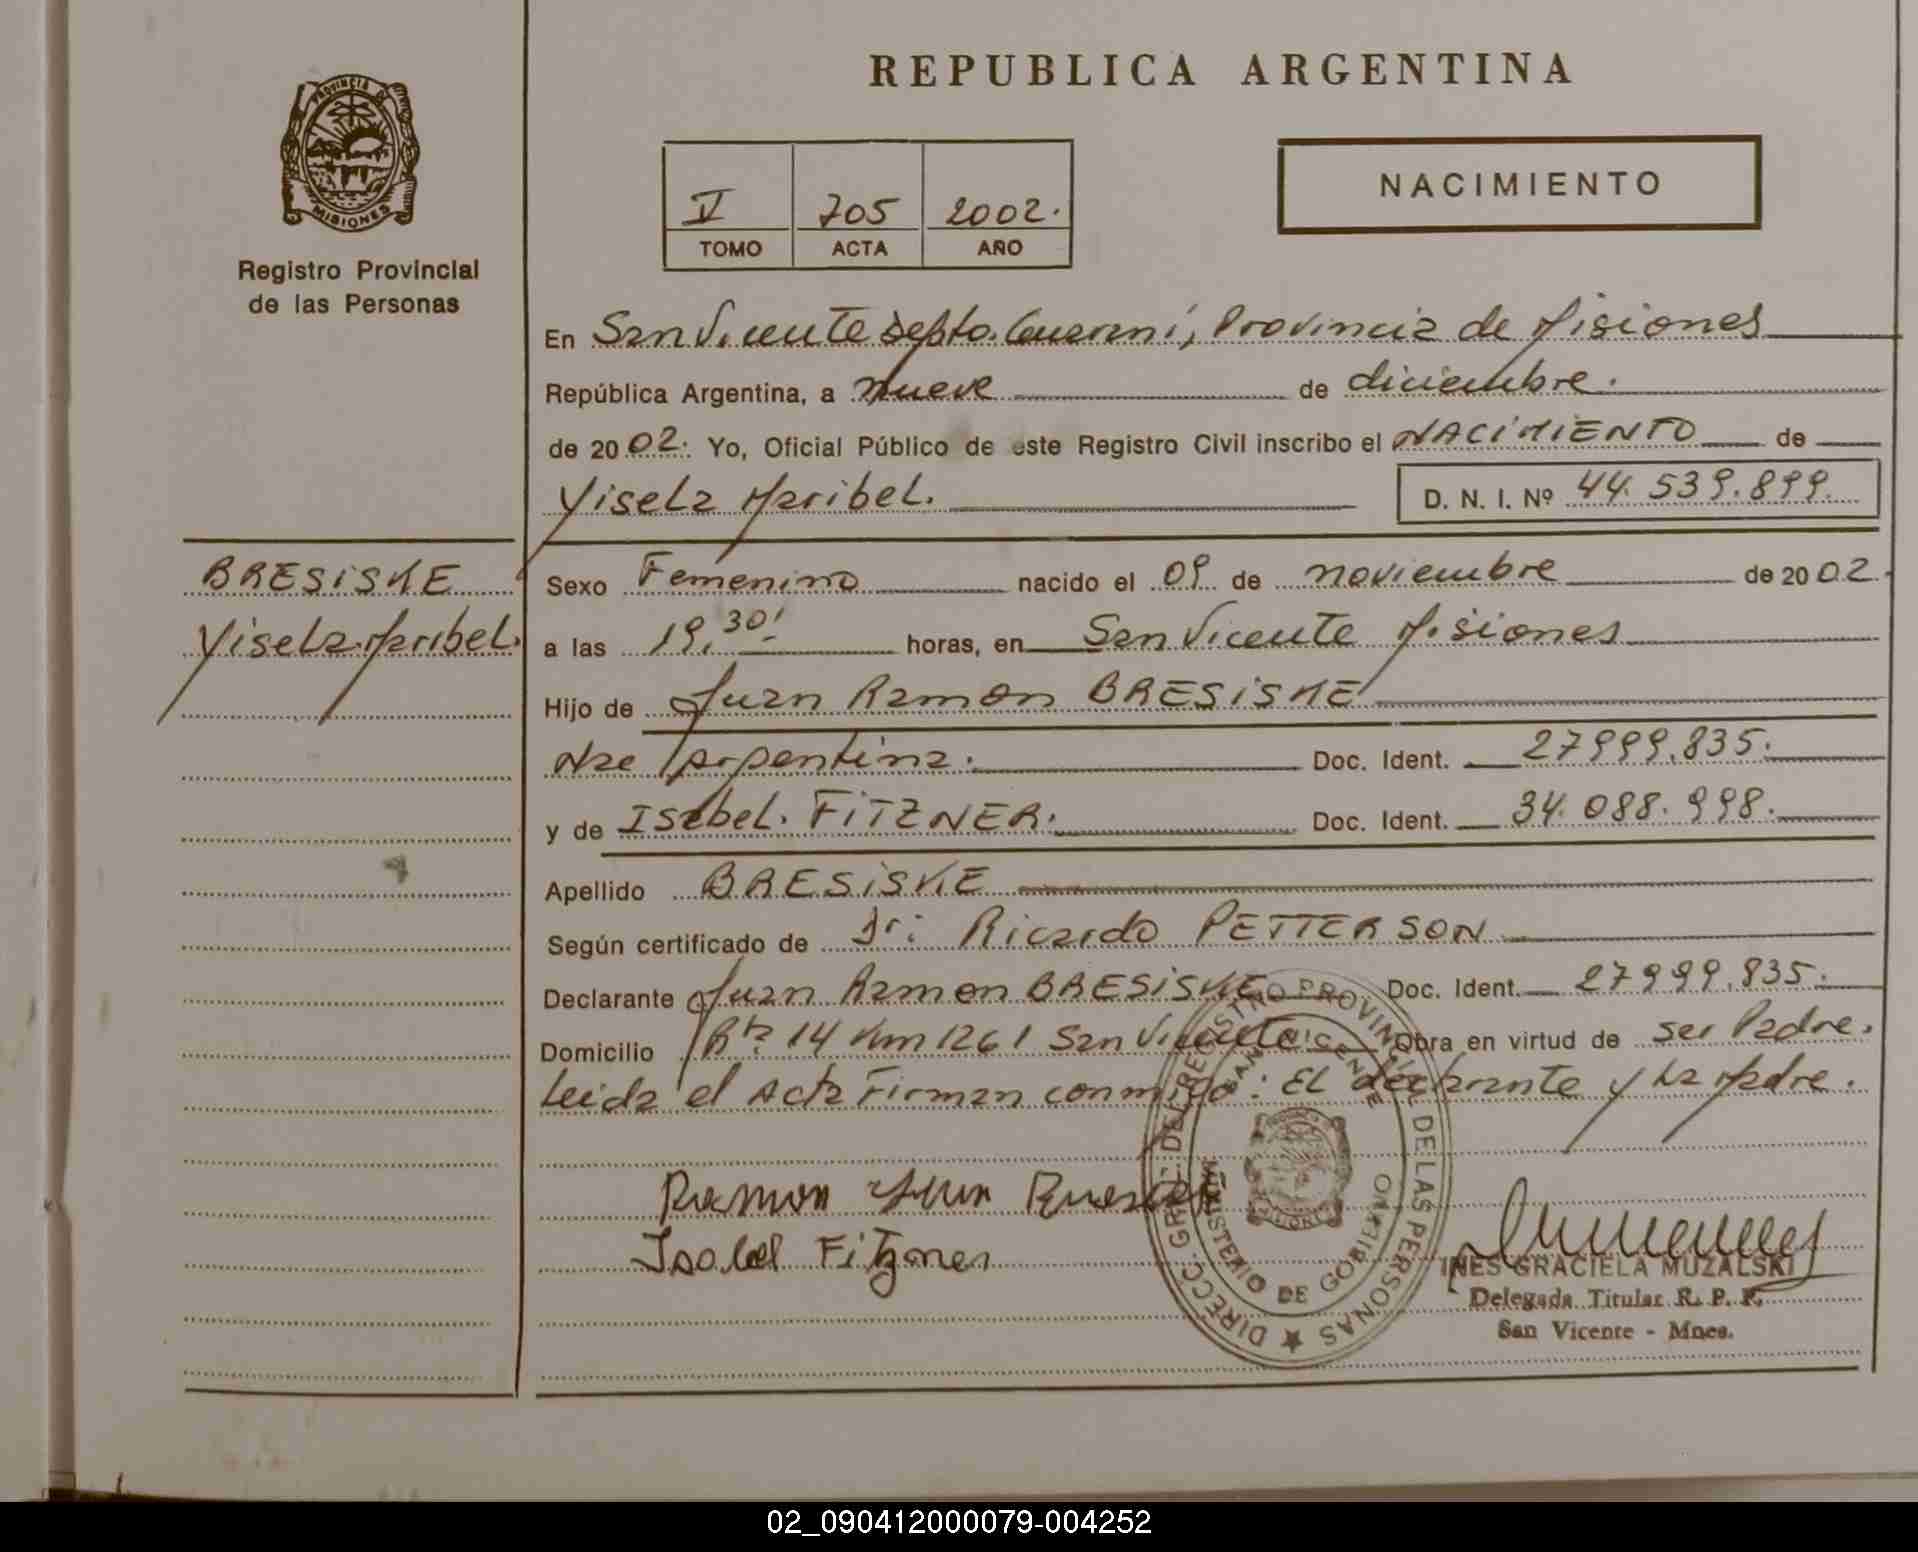 REPUBLICA ARGENTINA
PROVINCIA DE
MISIONES
Registro Provincial
de las Personas
V 705 2002.
TOMO ACTA AÑO
NACIMIENTO
En San Vicente Depto. Guaraní, Provincia de Misiones
República Argentina, a nueve de diciembre.
de 2002. Yo, Oficial Público de este Registro Civil inscribo el NACIMIENTO de
Yisela Maribel. D. N. I. Nº 44.539.899.
BRESISKE
Yisela Maribel.
Sexo Femenino nacido el 09 de noviembre de 2002.
a las 19,30' horas, en San Vicente Misiones
Hijo de Juan Ramon BRESISKE
Nac Argentina. Doc. Ident. 27999.835.
y de Isabel. FITZNER. Doc. Ident. 34.088.998.
Apellido BRESISKE
Según certificado de Dr: Ricardo PETTERSON
Declarante Juan Ramon BRESISKE Doc. Ident. 27999.835.
Domicilio Rta 14 Km 1261 San Vicente Obra en virtud de ser Padre.
Leida el Acta Firman conmigo: EL declarante y La Madre.
Ramon Juan
Isabel Fitzner
DIRECC. GRAL. DEL REGISTRO PROVINCIAL DE LAS PERSONAS
SAN VICENTE
MINISTERIO DE GOBIERNO
INES GRACIELA MUZALSKI
Delegada Titular R. P. P.
San Vicente - Mnes.
02_090412000079-004252